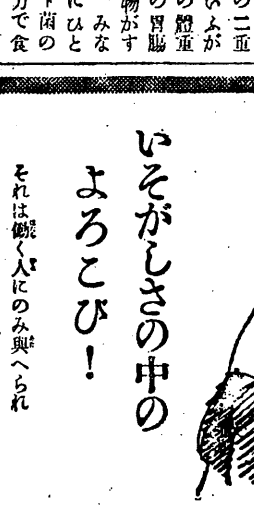 の二重
いふが
の體重
の胃腸
物がす
みな
にひと
下菌の
分で食
いそがしさの中の
よろこび!
それは働く人にのみ與へられ